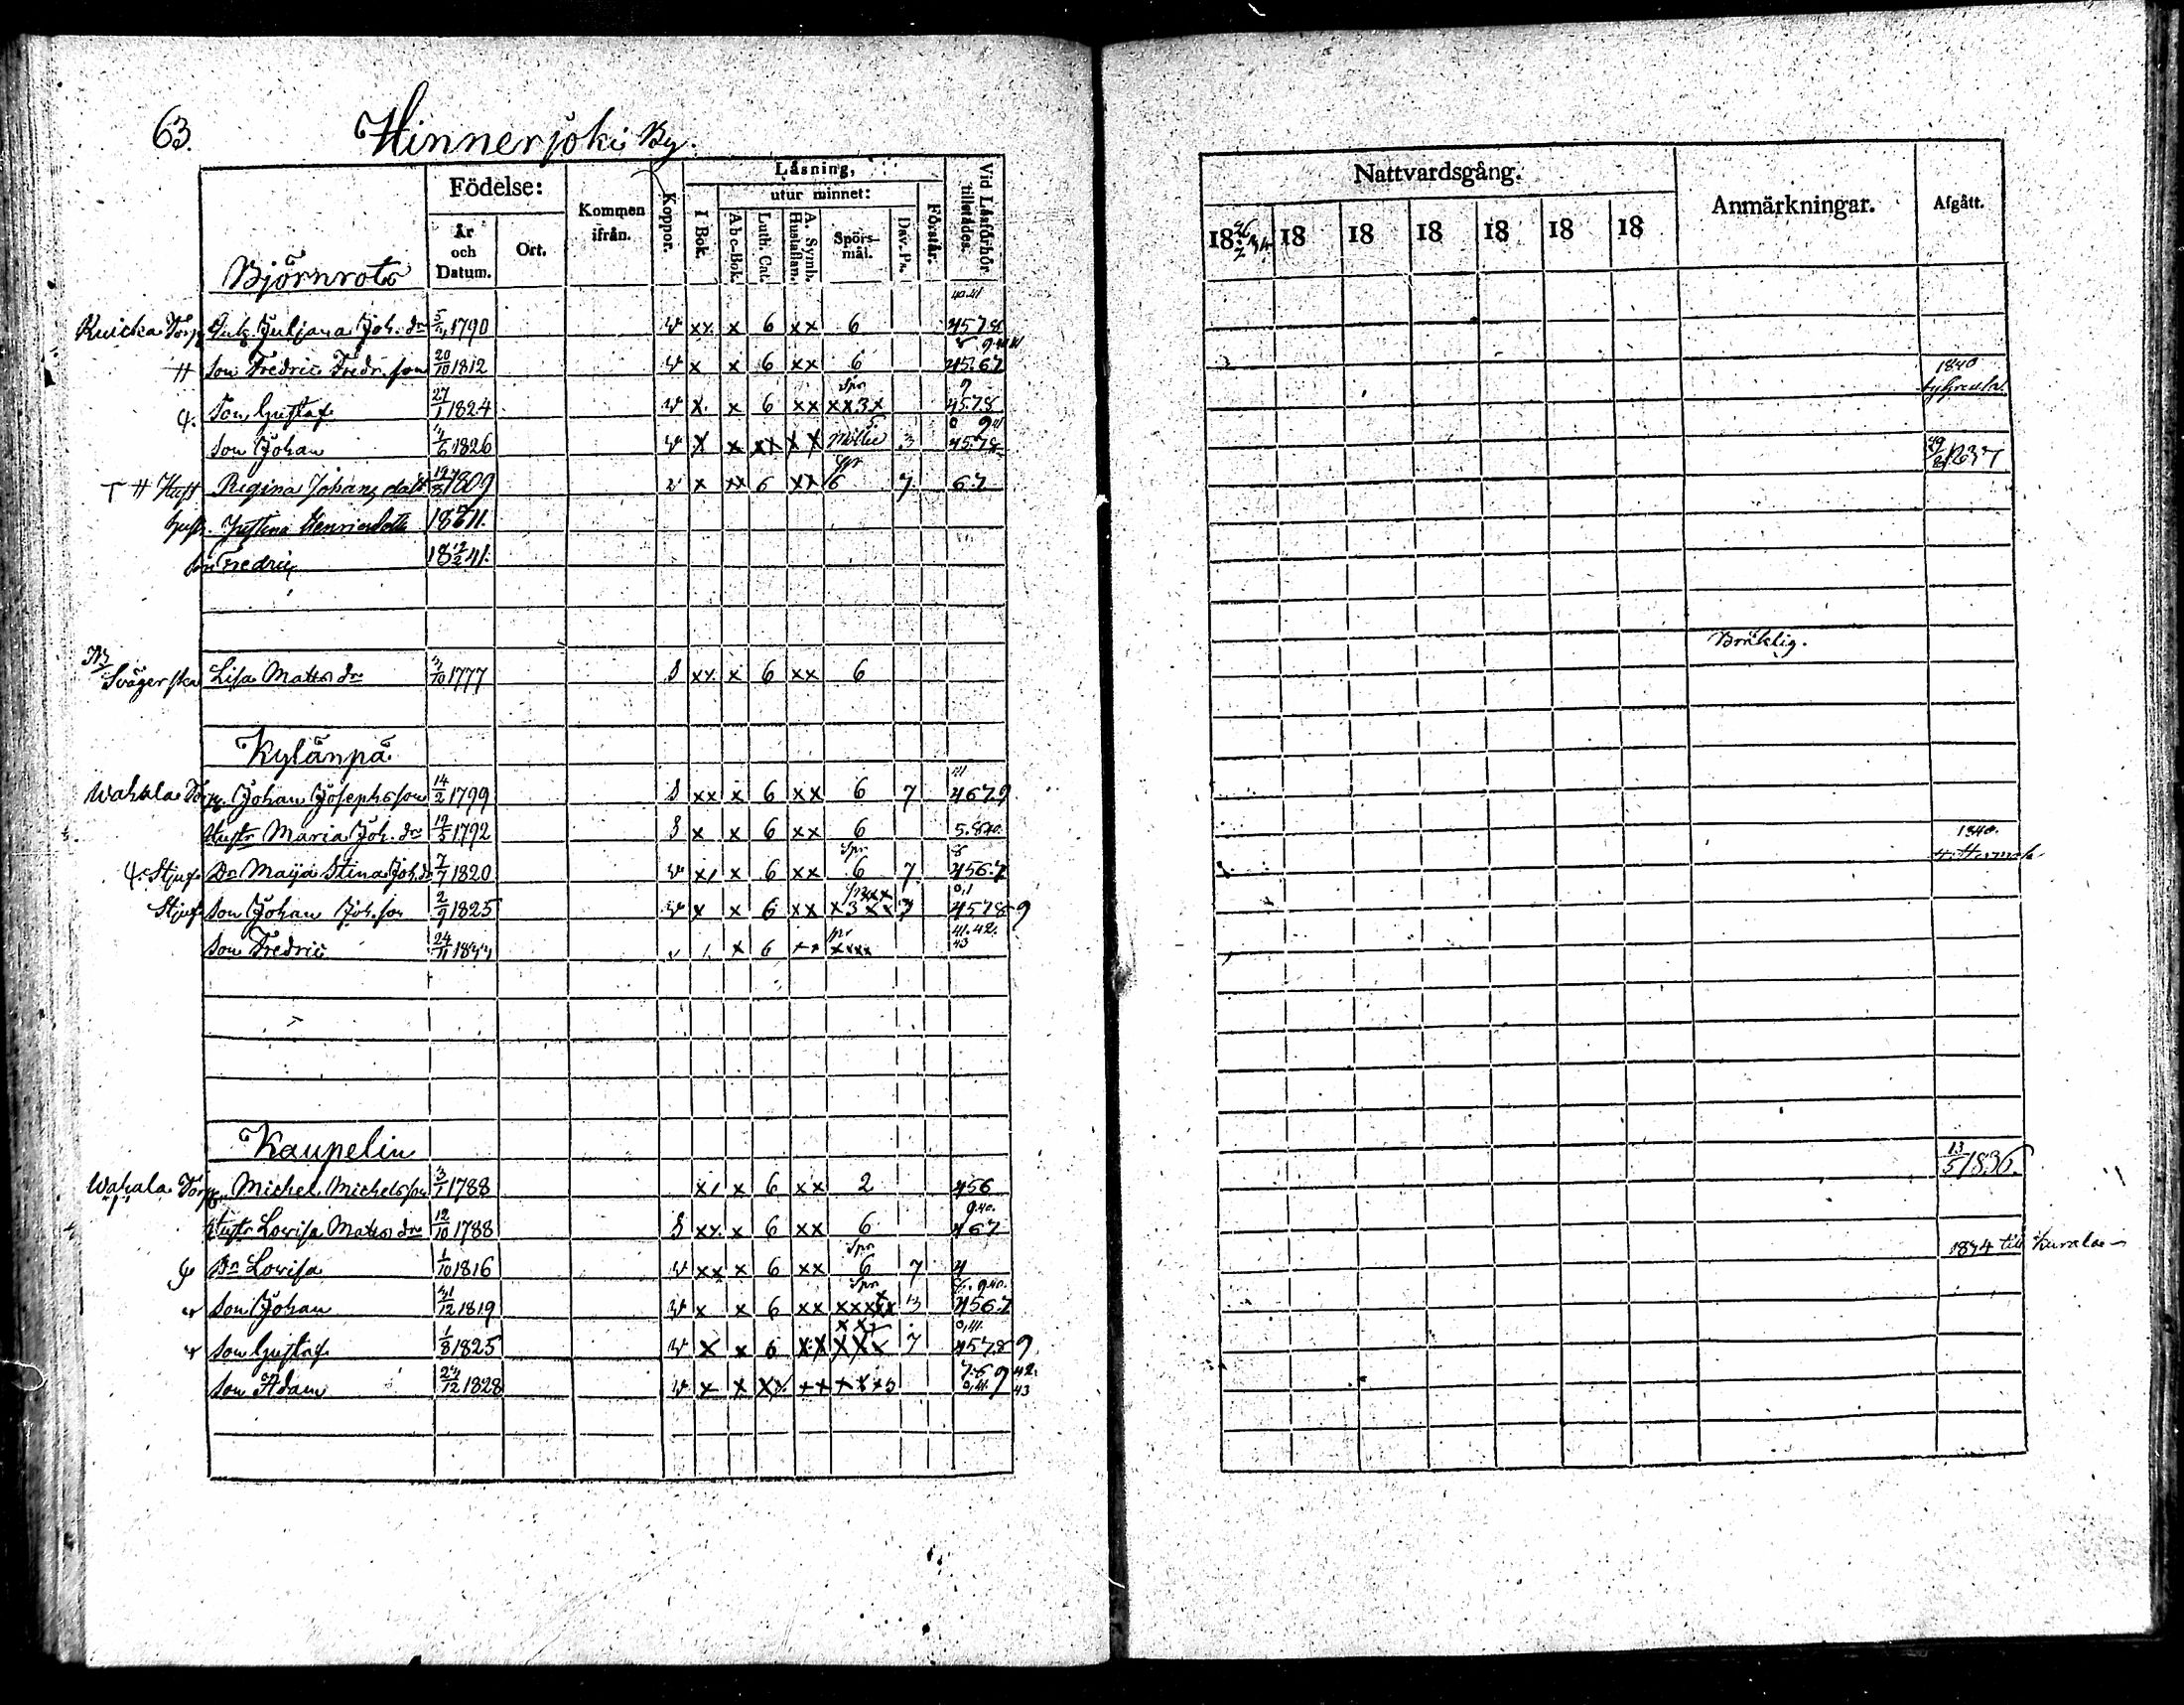 63.
Hinnerjoki By.
Födelse:
År och Datum.
Ort.
Kommen ifrån.
Koppor.
Läsning,
I Bok.
utur minnet:
Abc-Bok.
Luth. Cat.
A. Symb. Hustaflan.
Spörsmål.
Dav. Ps.
Förstår.
Vid Läsförhör tillstädes.
Nattvardsgång.
18 18 18 18 18 18 18
Anmärkningar.
Afgått.
Björnrots
40.41
Torp. Juliana Joh. dr 5/4 1790 v xx x 6 xx 6 4578
# Son Fredric Fredr. son 20/10 1812 v x x 6 xx 6 4567 1840
Son Gustaf 27/1 1824 v x x 6 xx xx3x 4578
Son Johan 1826 v x x xx xx 3 4578
# Hust Regina Johans dott 1809 v x xx 6 xx 6 7 67 1837
Hust. Justina Henricsdotter 1811.
Son Fredric 18 12/2 41.
Svägerska Lisa Matts dr 1777 S xx x 6 xx 6 Bräklig.
Kylänpä
Wahala Torp. Johan Josephsson 14/2 1799 S xx x 6 xx 6 7 4679
Hustr Maria Joh. dr 19/5 1792 S x x 6 xx 6 5.840. 1840.
Stjuf Dr Maija Stina Joh. dr 7/7 1820 v x x 6 xx Spr 6 7 4567
Stjuf Son Johan Joh. son 2/9 1825 v x x 6 xx 7 4578 9
Son Fredric 24/11 x 6 xx xxxx 41.42. 43
Kaupelin
Wahala Torp. Michel Michelsson 3/1 1788 x x 6 xx 2 456 13/5 1836.
Hustr Lovisa Matts dr 12/10 1788 S xx x 6 xx 6 467 9.40.
Dr Lovisa 1/10 1816 v xx x 6 xx Spr 6 7 4 1834 till Kurala
Son Johan 31/12 1819 v x x 6 xx Spr xxxxx 3 4567 8. 9 40.
Son Gustaf 1/8 1825 v x x 6 xx xxx 7 4578 9 0,41.
Son Adam 24/12 1828 v x x xx xx xxx3 7.8 9 42. 0,41. 43